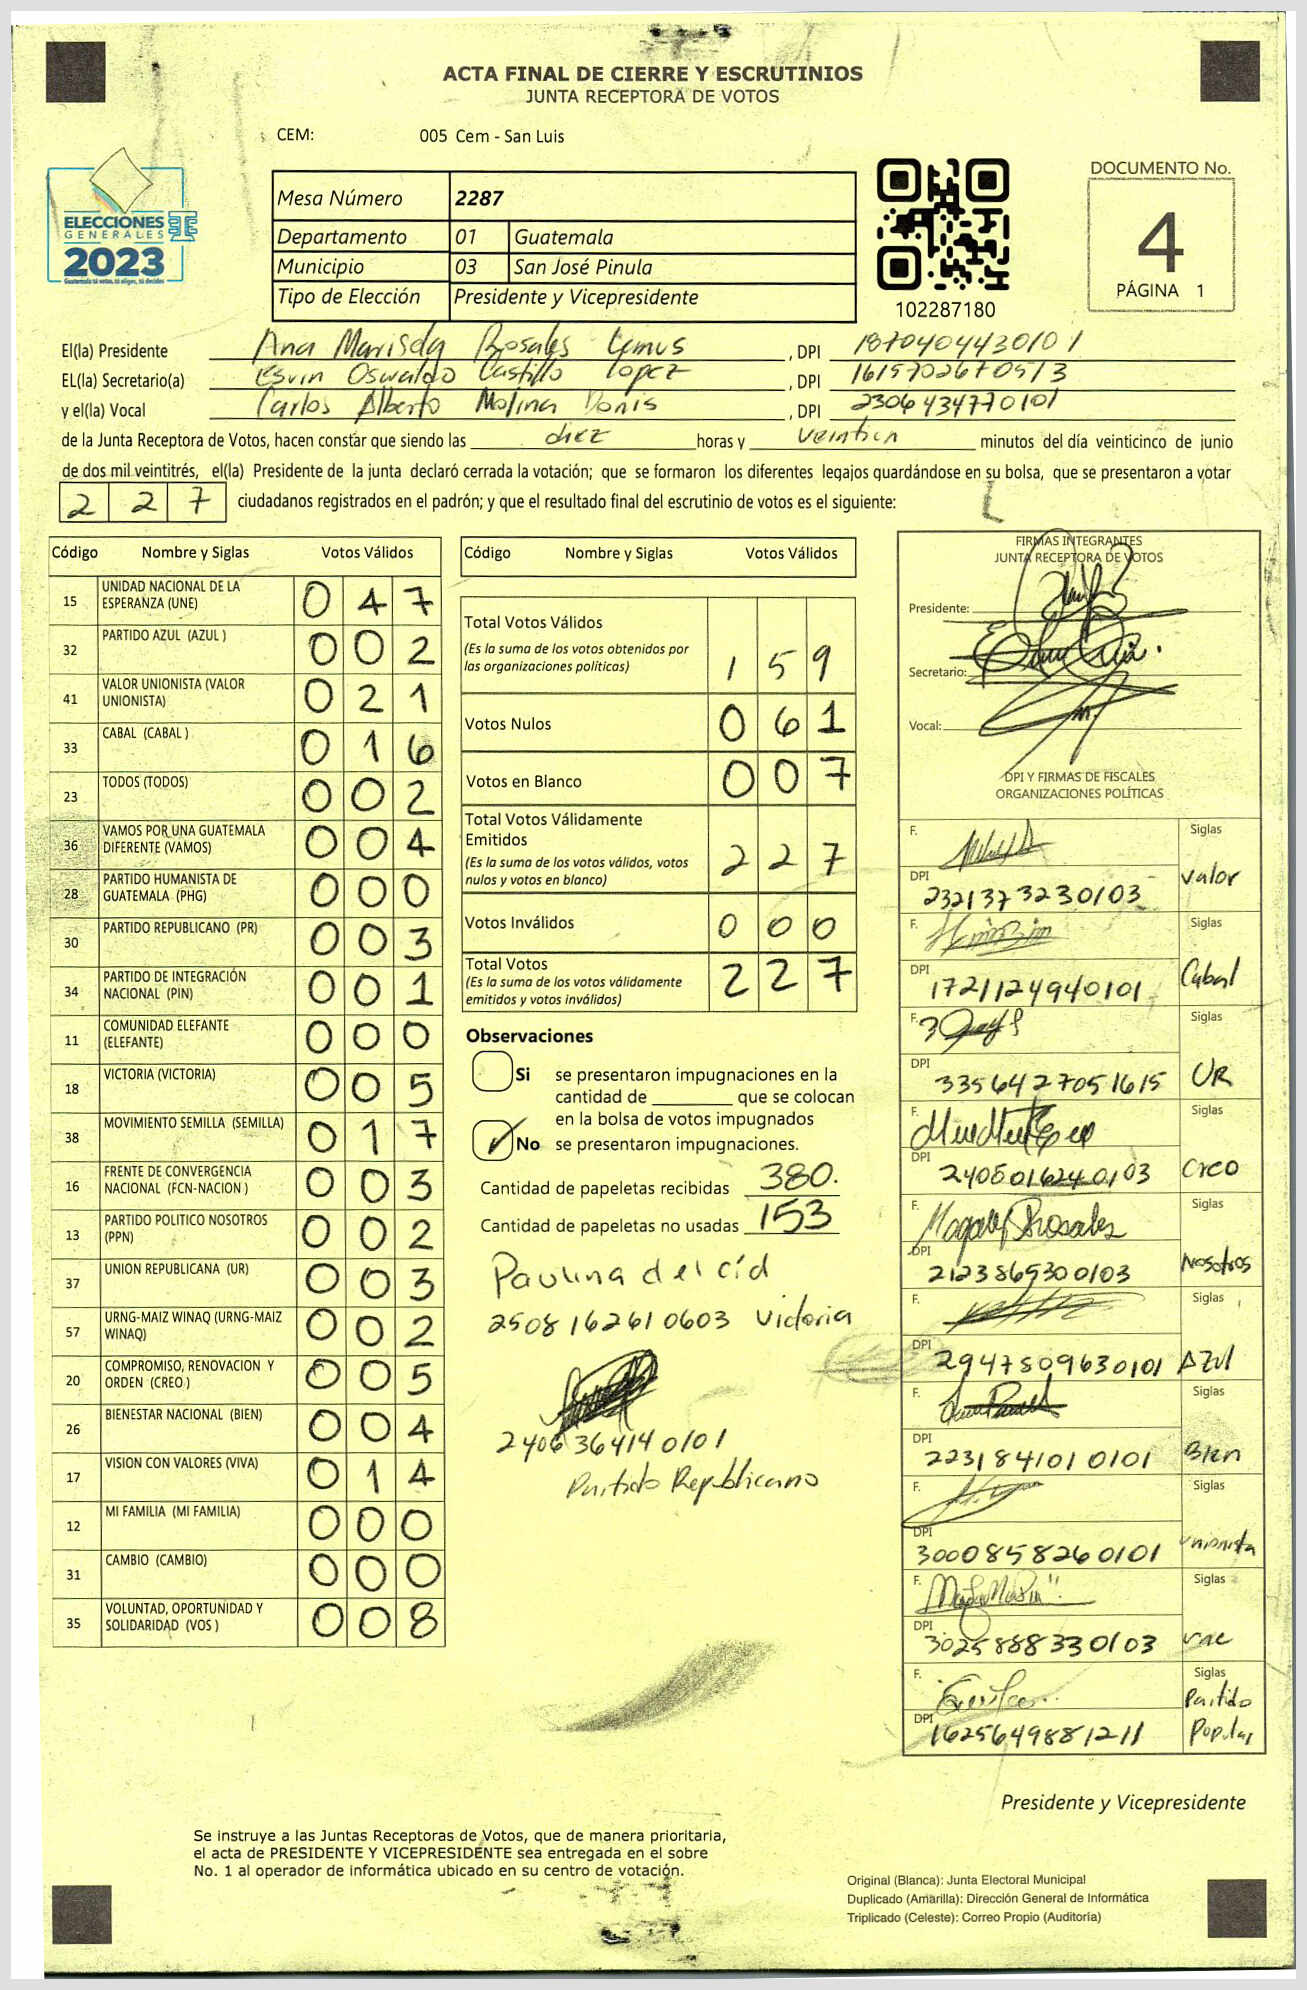 ACTA FINAL DE CIERRE Y ESCRUTINIOS
JUNTA RECEPTORA DE VOTOS
CEM: 005 Cem - San Luis
ELECCIONES
GENERALES
2023
Guatemala tú votas, tú eliges, tú decides
Mesa Número 2287
Departamento 01 Guatemala
Municipio 03 San José Pinula
Tipo de Elección Presidente y Vicepresidente
102287180
DOCUMENTO No.
4
PÁGINA 1
El(la) Presidente Ana Marisela Rosales Lemus , DPI 1870404430101
EL(la) Secretario(a) Esvin Oswaldo Castillo Lopez , DPI 1615702670513
y el(la) Vocal Carlos Alberto Molina Donis , DPI 2306434770101
de la Junta Receptora de Votos, hacen constar que siendo las diez horas y veintiun minutos del día veinticinco de junio
de dos mil veintitrés, el(la) Presidente de la junta declaró cerrada la votación; que se formaron los diferentes legajos guardándose en su bolsa, que se presentaron a votar
2 2 7 ciudadanos registrados en el padrón; y que el resultado final del escrutinio de votos es el siguiente:
Código Nombre y Siglas Votos Válidos
15 UNIDAD NACIONAL DE LA ESPERANZA (UNE) 0 4 7
32 PARTIDO AZUL (AZUL ) 0 0 2
41 VALOR UNIONISTA (VALOR UNIONISTA) 0 2 1
33 CABAL (CABAL ) 0 1 6
23 TODOS (TODOS) 0 0 2
36 VAMOS POR UNA GUATEMALA DIFERENTE (VAMOS) 0 0 4
28 PARTIDO HUMANISTA DE GUATEMALA (PHG) 0 0 0
30 PARTIDO REPUBLICANO (PR) 0 0 3
34 PARTIDO DE INTEGRACIÓN NACIONAL (PIN) 0 0 1
11 COMUNIDAD ELEFANTE (ELEFANTE) 0 0 0
18 VICTORIA (VICTORIA) 0 0 5
38 MOVIMIENTO SEMILLA (SEMILLA) 0 1 7
16 FRENTE DE CONVERGENCIA NACIONAL (FCN-NACION ) 0 0 3
13 PARTIDO POLITICO NOSOTROS (PPN) 0 0 2
37 UNION REPUBLICANA (UR) 0 0 3
57 URNG-MAIZ WINAQ (URNG-MAIZ WINAQ) 0 0 2
20 COMPROMISO, RENOVACION Y ORDEN (CREO ) 0 0 5
26 BIENESTAR NACIONAL (BIEN) 0 0 4
17 VISION CON VALORES (VIVA) 0 1 4
12 MI FAMILIA (MI FAMILIA) 0 0 0
31 CAMBIO (CAMBIO) 0 0 0
35 VOLUNTAD, OPORTUNIDAD Y SOLIDARIDAD (VOS ) 0 0 8
Código Nombre y Siglas Votos Válidos
Total Votos Válidos 1 5 9
(Es la suma de los votos obtenidos por
las organizaciones políticas)
Votos Nulos 0 6 1
Votos en Blanco 0 0 7
Total Votos Válidamente
Emitidos 2 2 7
(Es la suma de los votos válidos, votos
nulos y votos en blanco)
Votos Inválidos 0 0 0
Total Votos 2 2 7
(Es la suma de los votos válidamente
emitidos y votos inválidos)
Observaciones
Si se presentaron impugnaciones en la
cantidad de ________ que se colocan
en la bolsa de votos impugnados
No se presentaron impugnaciones.
Cantidad de papeletas recibidas 380.
Cantidad de papeletas no usadas 153
Paulina del cid
2508162610603 Victoria
2406364140101
Partido Republicano
FIRMAS INTEGRANTES
JUNTA RECEPTORA DE VOTOS
Presidente:
Secretario:
Vocal:
DPI Y FIRMAS DE FISCALES
ORGANIZACIONES POLÍTICAS
F. Siglas
DPI 2321373230103 valor
F. Siglas
DPI 1721124940101 Cabal
F. Siglas
DPI 3356427051615 UR
F. Siglas
DPI 2405016240103 Creo
F. Magaly Rosales Siglas
DPI 2123869300103 Nosotros
F. Siglas
DPI 2947509630101 AZul
F. Siglas
DPI 2231841010101 Bien
F. Siglas
DPI 3000858260101 unionista
F. Siglas
DPI 3025888330103 une
F. Siglas
DPI 1625649881211 Partido Popular
Presidente y Vicepresidente
Se instruye a las Juntas Receptoras de Votos, que de manera prioritaria,
el acta de PRESIDENTE Y VICEPRESIDENTE sea entregada en el sobre
No. 1 al operador de informática ubicado en su centro de votación.
Original (Blanca): Junta Electoral Municipal
Duplicado (Amarilla): Dirección General de Informática
Triplicado (Celeste): Correo Propio (Auditoría)